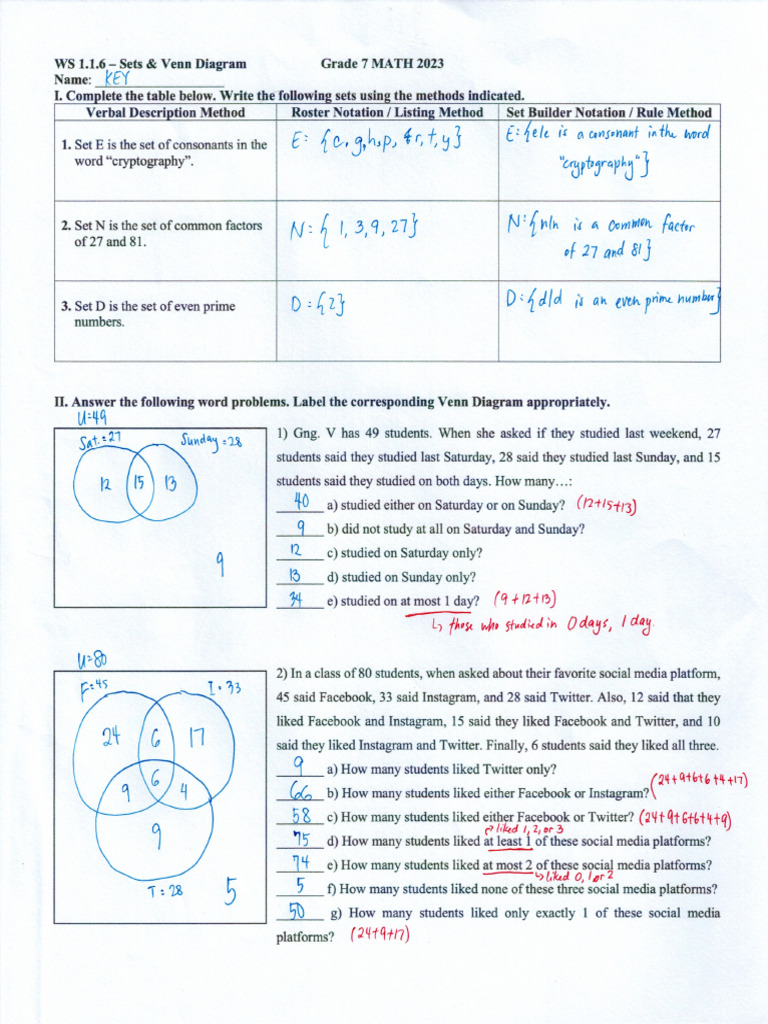 WS 1.1.6 – Sets & Venn Diagram Grade 7 MATH 2023
Name: KEY
I. Complete the table below. Write the following sets using the methods indicated.
Verbal Description Method Roster Notation / Listing Method Set Builder Notation / Rule Method
1. Set E is the set of consonants in the
word “cryptography”.
E: {c, g, h, p, r, t, y}
E: {e|e is a consonant in the word
"cryptography"}
2. Set N is the set of common factors
of 27 and 81.
N: { 1, 3, 9, 27}
N: {n|n is a common factor
of 27 and 81}
3. Set D is the set of even prime
numbers.
D: {2}
D: {d|d is an even prime number}
II. Answer the following word problems. Label the corresponding Venn Diagram appropriately.
U=49
Sat.=27 Sunday=28
12 15 13
9
1) Gng. V has 49 students. When she asked if they studied last weekend, 27
students said they studied last Saturday, 28 said they studied last Sunday, and 15
students said they studied on both days. How many…:
40 a) studied either on Saturday or on Sunday? (12+15+13)
9 b) did not study at all on Saturday and Sunday?
12 c) studied on Saturday only?
13 d) studied on Sunday only?
34 e) studied on at most 1 day? (9+12+13)
↳ those who studied in 0 days, 1 day.
U=80
F=45 I=33
24 6 17
6
9 4
9
T=28 5
2) In a class of 80 students, when asked about their favorite social media platform,
45 said Facebook, 33 said Instagram, and 28 said Twitter. Also, 12 said that they
liked Facebook and Instagram, 15 said they liked Facebook and Twitter, and 10
said they liked Instagram and Twitter. Finally, 6 students said they liked all three.
9 a) How many students liked Twitter only?
66 b) How many students liked either Facebook or Instagram? (24+9+6+6+4+17)
58 c) How many students liked either Facebook or Twitter? (24+9+6+6+4+9)
liked 1, 2, or 3
75 d) How many students liked at least 1 of these social media platforms?
74 e) How many students liked at most 2 of these social media platforms?
↳ liked 0, 1 or 2
5 f) How many students liked none of these three social media platforms?
50 g) How many students liked only exactly 1 of these social media
platforms? (24+9+17)